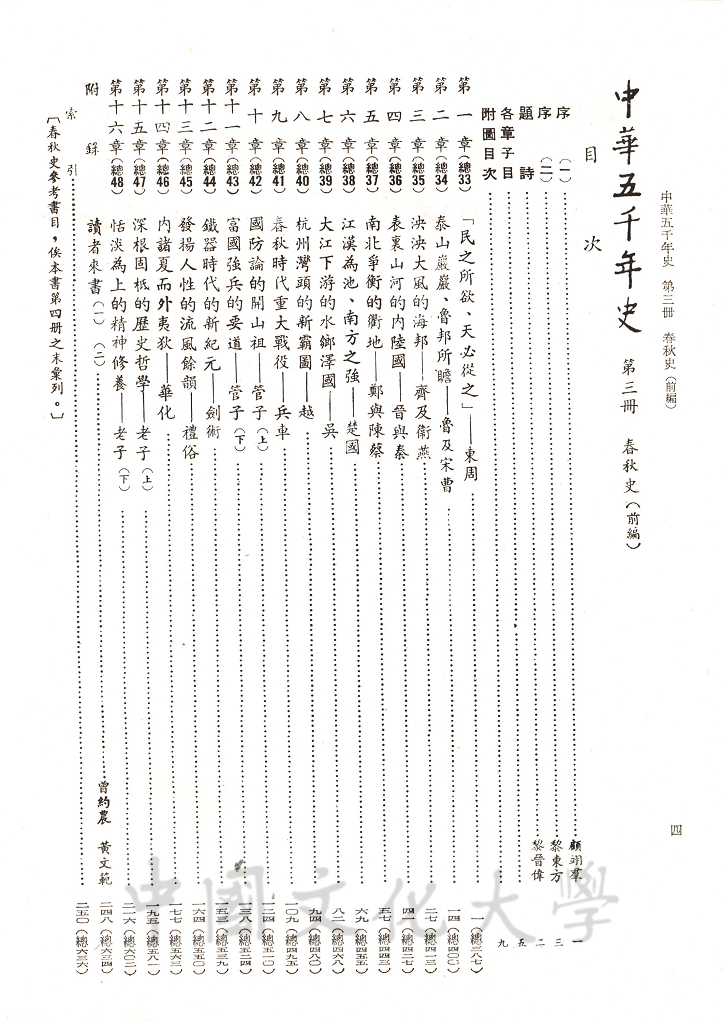 中華五千年史　第三冊　春秋史（前編）
四
中華五千年史　第三冊　春秋史（前編）
目次
序（一）……顧翊羣　一
序（二）……黎東方　三
題詩……黎晉偉　二
各章子目……五
附圖目次……九
第一章（總33）「民之所欲、天必從之」——東周……一（總三八七）
第二章（總34）泰山巖巖、魯邦所瞻——魯及宋曹……一四（總四〇〇）
第三章（總35）泱泱大風的海邦——齊及衞燕……二七（總四一三）
第四章（總36）表裏山河的內陸國——晉與秦……四一（總四二七）
第五章（總37）南北爭衡的衢地——鄭與陳蔡……五七（總四四三）
第六章（總38）江漢為池、南方之強——楚國……六九（總四五五）
第七章（總39）大江下游的水鄉澤國——吳……八二（總四六八）
第八章（總40）杭州灣頭的新霸圖——越……九四（總四八〇）
第九章（總41）春秋時代重大戰役——兵車……一〇九（總四九五）
第十章（總42）國防論的開山祖——管子（上）……一二四（總五一〇）
第十一章（總43）富國強兵的要道——管子（下）……一三八（總五二四）
第十二章（總44）鐵器時代的新紀元——劍術……一五三（總五三九）
第十三章（總45）發揚人性的流風餘韻——禮俗……一六四（總五五〇）
第十四章（總46）內諸夏而外夷狄——華化……一七七（總五六三）
第十五章（總47）深根固柢的歷史哲學——老子（上）……一九五（總五八一）
第十六章（總48）恬淡為上的精神修養——老子（下）……二一六（總六〇二）
附錄　讀者來書（一）（二）……曾約農　黃文範　二四八（總六三四）
索引……二五〇（總六三六）
〔春秋史參考書目，俟本書第四冊之末彙列。〕
中國文化大學